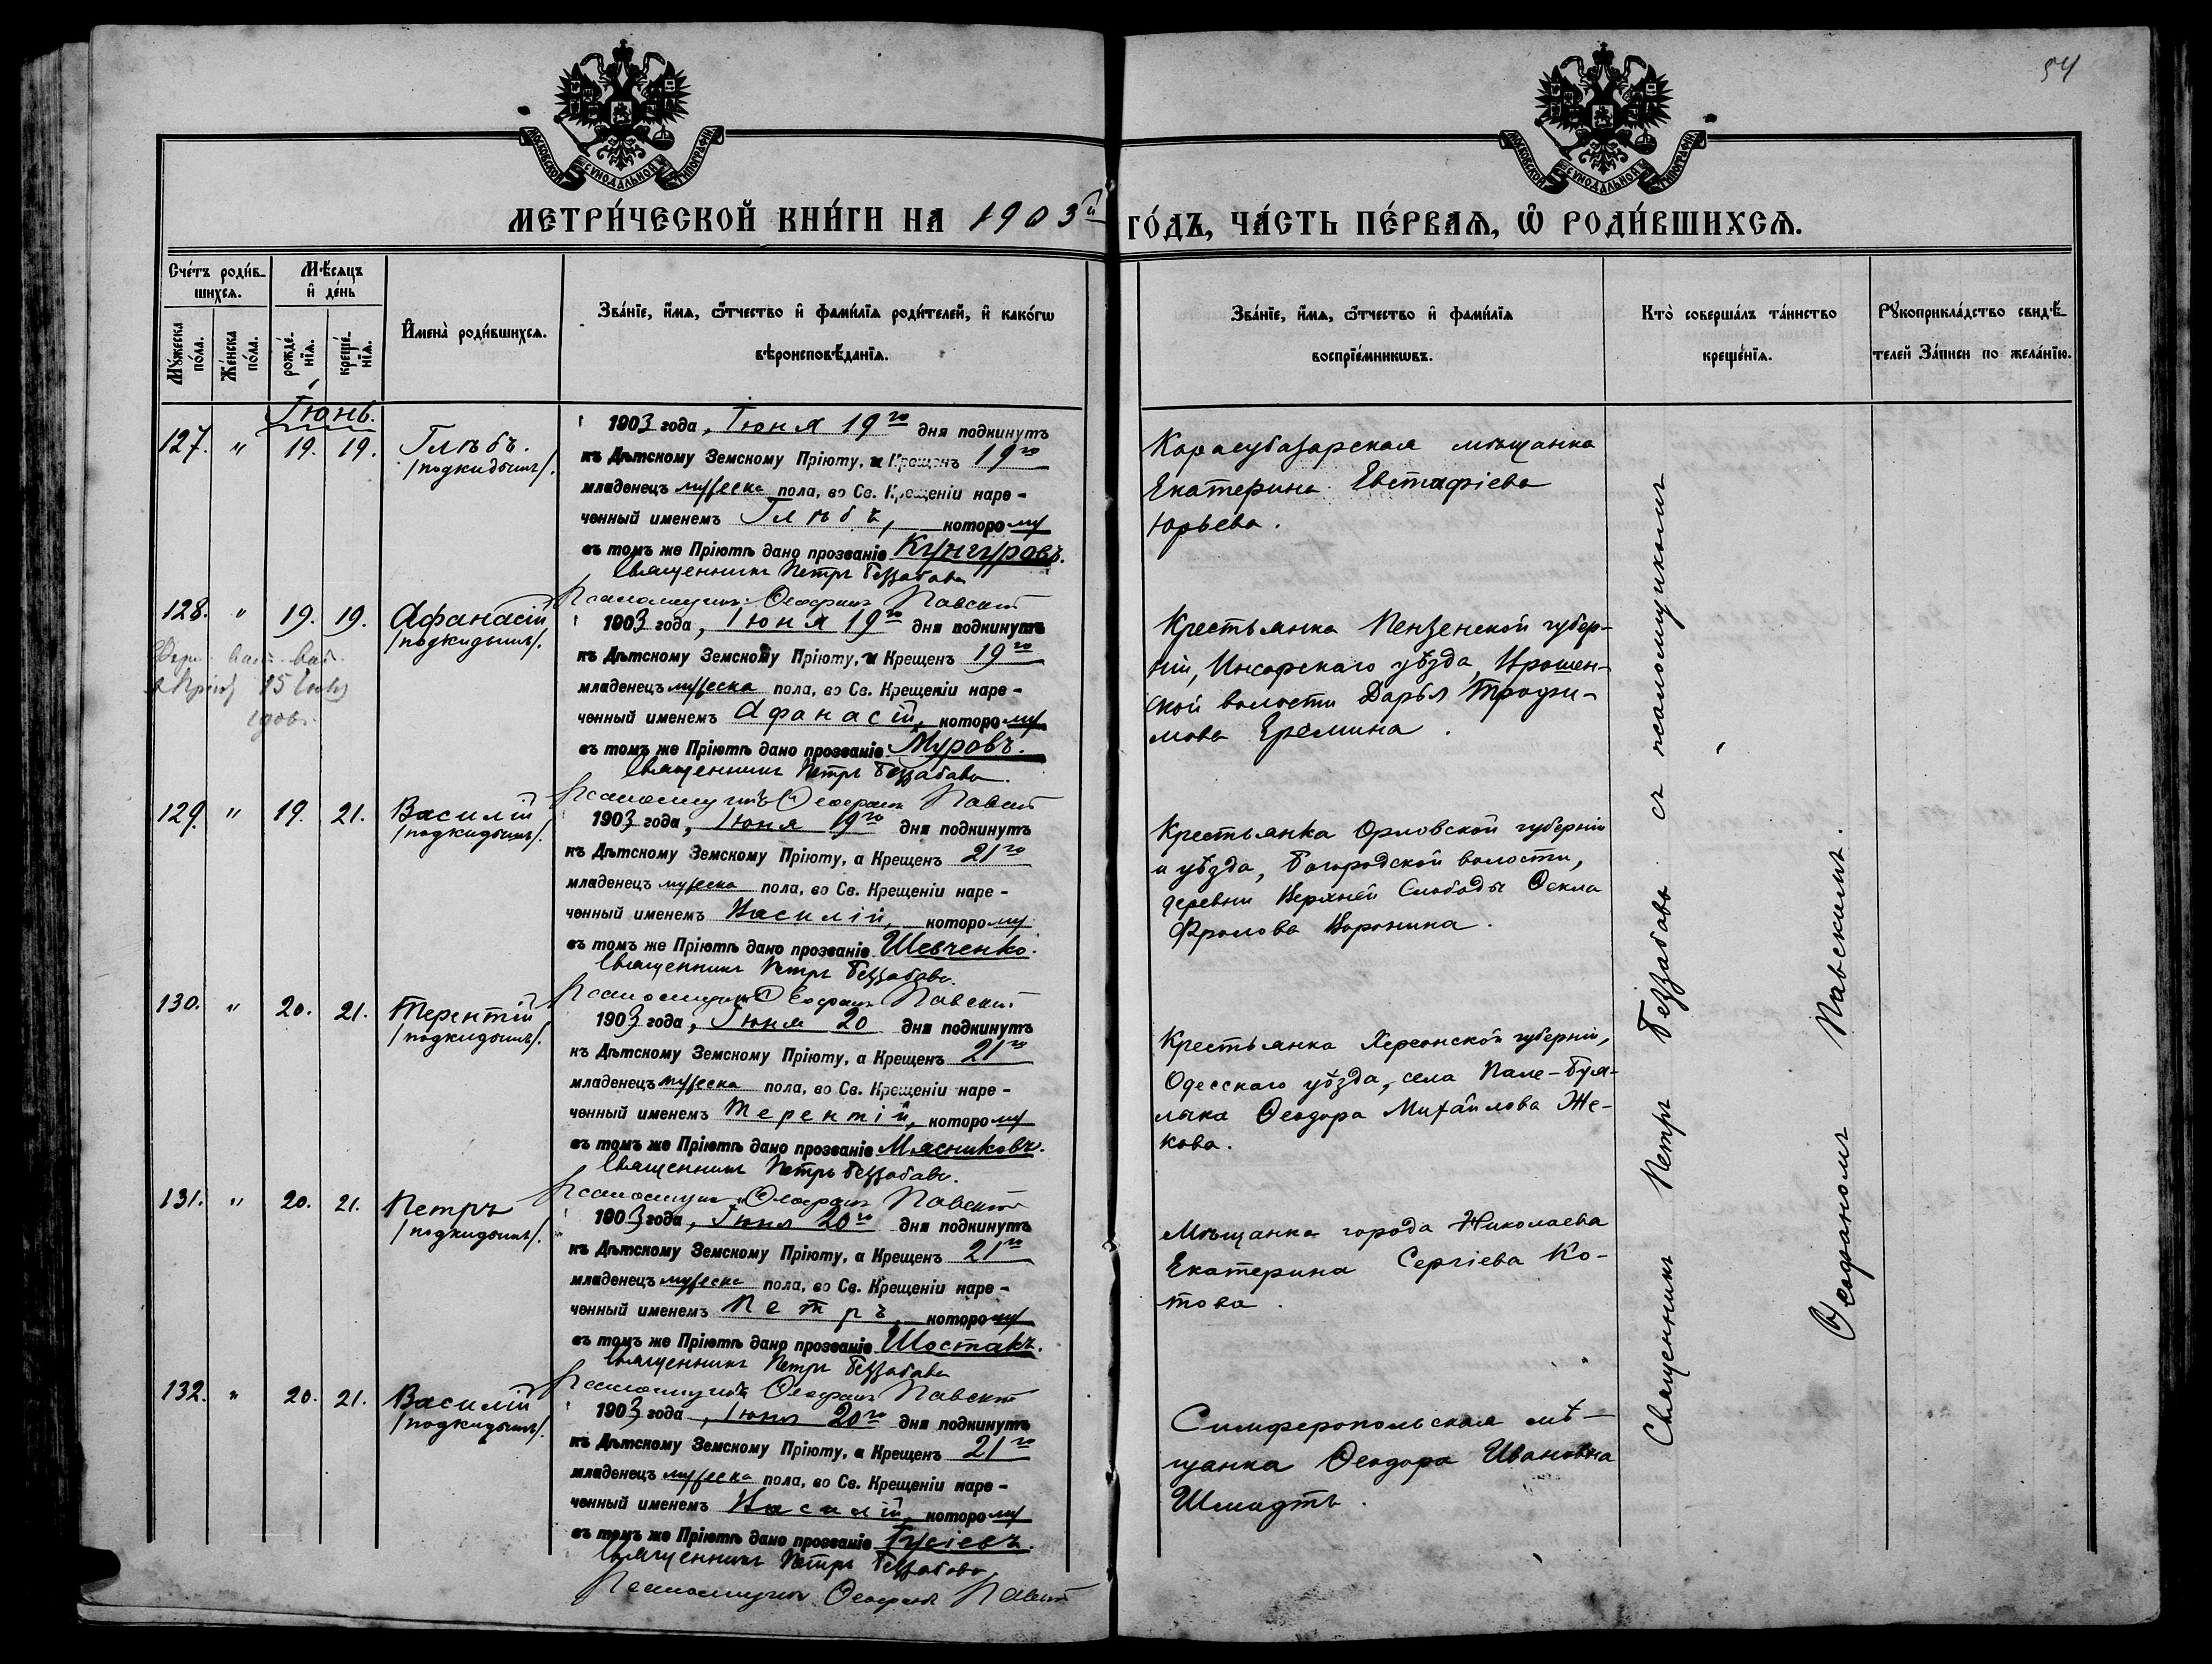 54
МОСКОВСКОЙ СѴНОДАЛЬНОЙ ТИПОГРАФІИ
МОСКОВСКОЙ СѴНОДАЛЬНОЙ ТИПОГРАФІИ
МЕТРИ́ЧЕСКОЙ КНИ́ГИ НА 1903й ГО́ДЪ, ЧА́СТЬ ПЕ́РВАѦ, Ѽ РОДИ́ВШИХСѦ.
Сче́тъ роди́в-
шихсѧ.
Мꙋжеска по́ла.
Же́нска по́ла.
Мѣ́сѧцъ
и҆ де́нь
рожде́-
нїѧ.
креще́-
нїѧ.
И҆мена̀ роди́вшихсѧ.
Зва́нїе, и҆́мѧ, ѻ҆́тчество и҆ фами́лїѧ роди́телей, и҆ како́гѡ
вѣроисповѣ́данїѧ.
Зва́нїе, и҆́мѧ, ѻ҆́тчество и҆ фами́лїѧ
воспрїе́мникѡвъ.
Кто̀ соверша́лъ та́инство
креще́нїѧ.
Рꙋкоприкла́дство свидѣ́-
телей За́писи по жела́нїю.
Іюнь.
127. " 19. 19. Глѣбъ.
/подкидышъ/.
1903 года, Іюня 19го дня подкинутъ
къ Дѣтскому Земскому Пріюту, и Крещенъ 19го
младенецъ мужеска пола, во Св. Крещеніи наре-
ченный именемъ Глѣбъ, которому
въ томъ же Пріютѣ дано прозваніе Кунгуровъ.
Священникъ Петръ Беззабава
Псаломщикъ Ѳеофанъ Павскій
Карасубазарская мѣщанка
Екатерина Евстафіева
Юрьева.
128. " 19. 19. Афанасій
/подкидышъ/.
15
1906
1903 года, Іюня 19го дня подкинутъ
къ Дѣтскому Земскому Пріюту, и Крещенъ 19го
младенецъ мужеска пола, во Св. Крещеніи наре-
ченный именемъ Афанасій, которому
въ томъ же Пріютѣ дано прозваніе Муровъ.
Священникъ Петръ Беззабава.
Псаломщикъ Ѳеофанъ Павскій
Крестьянка Пензенской губер-
ніи, Инсарскаго уѣзда,
ской волости Дарья Трофи-
мова Еремина.
129. " 19. 21. Василій
/подкидышъ/.
1903 года, Іюня 19го дня подкинутъ
къ Дѣтскому Земскому Пріюту, а Крещенъ 21го
младенецъ мужеска пола, во Св. Крещеніи наре-
ченный именемъ Василій, которому
въ томъ же Пріютѣ дано прозваніе Шевченко.
Священникъ Петръ Беззабава.
Псаломщикъ Ѳеофанъ Павскій
Крестьянка Орловской губерніи
и уѣзда, Богородской волости,
деревни Верхней Слободы Ѳекла
Фролова Воронина.
130. " 20. 21. Терентій
/подкидышъ/.
1903 года, Іюня 20 дня подкинутъ
къ Дѣтскому Земскому Пріюту, а Крещенъ 21го
младенецъ мужеска пола, во Св. Крещеніи наре-
ченный именемъ Терентій, которому
въ томъ же Пріютѣ дано прозваніе Мясниковъ.
Священникъ Петръ Беззабава.
Псаломщикъ Ѳеофанъ Павскій
Крестьянка Херсонской губерніи,
Одесскаго уѣзда, села
Ѳеодора Михайлова Же-
кова.
131. " 20. 21. Петръ
/подкидышъ/.
1903 года, Іюня 20го дня подкинутъ
къ Дѣтскому Земскому Пріюту, а Крещенъ 21го
младенецъ мужеска пола, во Св. Крещеніи наре-
ченный именемъ Петръ, которому
въ томъ же Пріютѣ дано прозваніе Шостакъ.
Священникъ Петръ Беззабава
Псаломщикъ Ѳеофанъ Павскій
Мѣщанка города Николаева
Екатерина Сергіева Ко-
това.
132. " 20. 21. Василій
/подкидышъ/.
1903 года, Іюня 20го дня подкинутъ
къ Дѣтскому Земскому Пріюту, а Крещенъ 21го
младенецъ мужеска пола, во Св. Крещеніи наре-
ченный именемъ Василій, которому
въ томъ же Пріютѣ дано прозваніе Гусіевъ.
Священникъ Петръ Беззабава
Псаломщикъ Ѳеофанъ Павскій
Симферопольская мѣ-
щанка Ѳеодора Ивановна
Шмидтъ.
Священникъ Петръ Беззабава съ псаломщикомъ
Ѳеофаномъ Павскимъ.